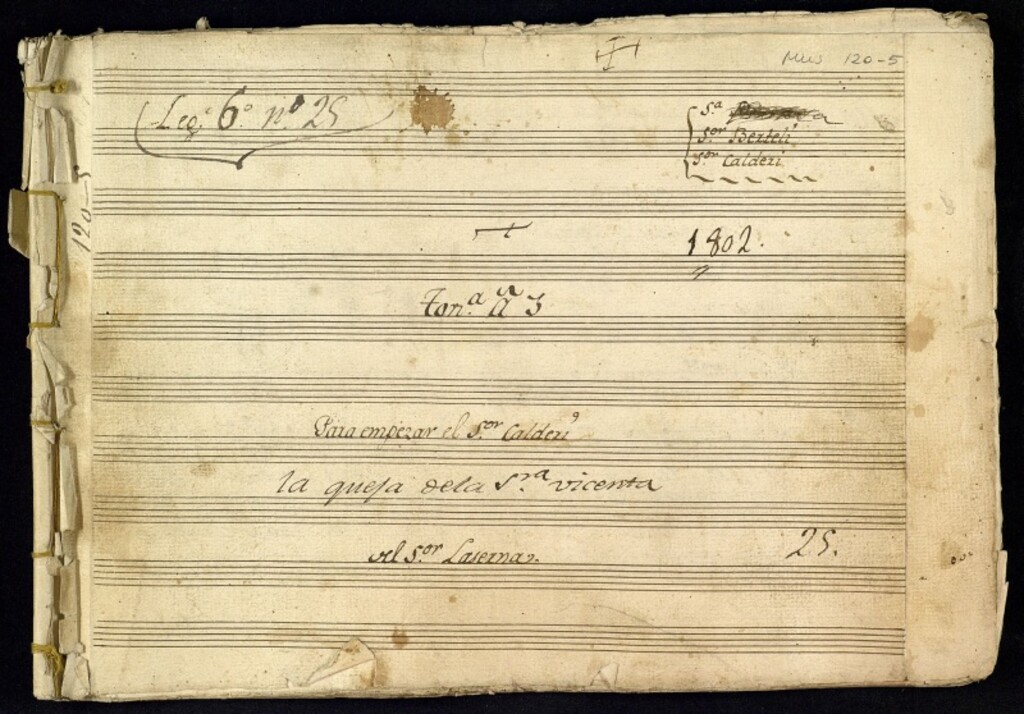 Mus 120-5
Leg.º 6.º n.º 25
S.ª
S.or Berteli
S.or Calderi
120-5
1802.
Ton.ª à 3
Para empezar el S.or Calderi
la queja dela S.ra vicenta
Del S.or Laserna.
25.